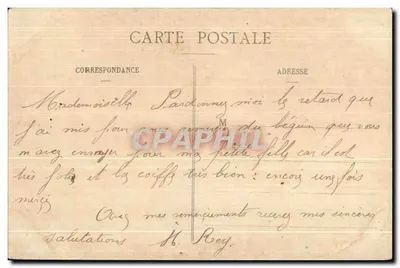 CARTE POSTALE
CORRESPONDANCE
ADRESSE
Mademoiselle Pardonnez moi le retard que
j'ai mis pour vous remercier du béguin que vous
m'avez envoyer pour ma petite fille car il est
très folie et la coiffe très bien : encore une fois
merçi
Avec mes remerciements recevez mes sincères
salutations H. Rey.
CPAPHIL